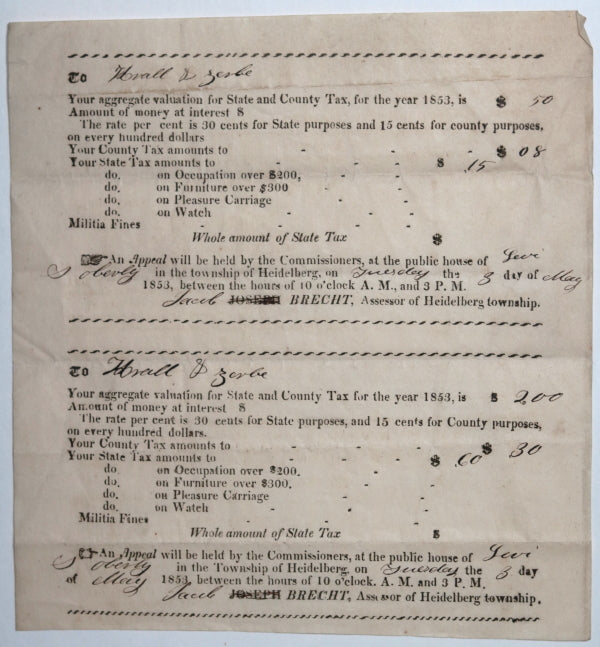 To Hrall & Zerbe
Your aggregate valuation for State and County Tax, for the year 1853, is $ 50
Amount of money at interest $
The rate per cent is 30 cents for State purposes and 15 cents for county purposes,
on every hundred dollars
Your County Tax amounts to - - - - $ 08
Your State Tax amounts to - - - $ 15
do. on Occupation over $200, - -
do. on Furniture over $300 - -
do. on Pleasure Carriage - -
do. on Watch - - -
Militia Fines - - - - -
Whole amount of State Tax $
An Appeal will be held by the Commissioners, at the public house of Levi
S oberly in the township of Heidelberg, on Tuesday the 3 day of May
1853, between the hours of 10 o'clock A. M., and 3 P. M.
Jacob JOSEPH BRECHT, Assessor of Heidelberg township.
To Hrall & Zerbe
Your aggregate valuation for State and County Tax for the year 1853, is $ 200
Amount of money at interest $
The rate per cent is 30 cents for State purposes, and 15 cents for County purposes,
on every hundred dollars.
Your County Tax amounts to - - - - $ 30
Your State Tax amounts to - - - $ 60
do. on Occupation over $200. - -
do. on Furniture over $300. - -
do. on Pleasure Carriage -
do. on Watch - -
Militia Fines - - - -
Whole amount of State Tax $
An Appeal will be held by the Commissioners, at the public house of Levi
S oberly in the Township of Heidelberg, on Tuesday the 3 day
of May 1853, between the hours of 10 o'clock. A. M. and 3 P. M.
Jacob JOSEPH BRECHT, Assessor of Heidelberg township.